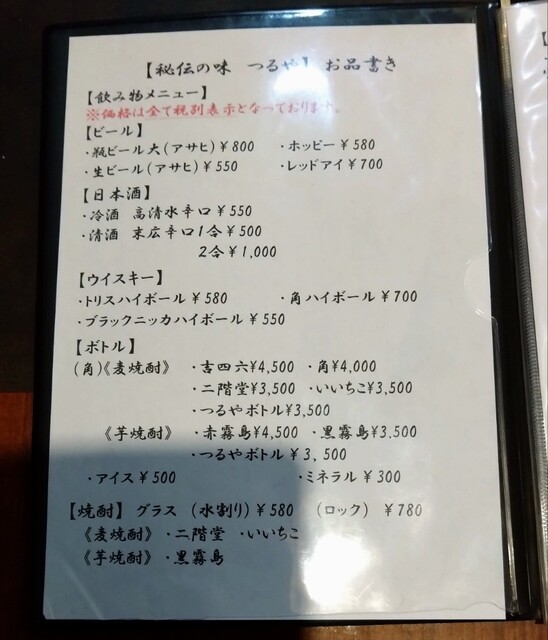 【秘伝の味 つるや】 お品書き
【飲み物メニュー】
※価格は全て税別表示となっております。
【ビール】
・瓶ビール大(アサヒ)¥800 ・ホッピー¥580
・生ビール(アサヒ)¥550 ・レッドアイ¥700
【日本酒】
・冷酒 高清水辛口¥550
・清酒 末広辛口1合¥500
2合¥1,000
【ウイスキー】
・トリスハイボール¥580 ・角ハイボール¥700
・ブラックニッカハイボール¥550
【ボトル】
(角)《麦焼酎》 ・吉四六¥4,500 ・角¥4,000
・二階堂¥3,500 ・いいちこ¥3,500
・つるやボトル¥3,500
《芋焼酎》 ・赤霧島¥4,500 ・黒霧島¥3,500
・つるやボトル¥3,500
・アイス¥500 ・ミネラル¥300
【焼酎】 グラス (水割り)¥580 (ロック) ¥780
《麦焼酎》・二階堂 ・いいちこ
《芋焼酎》・黒霧島